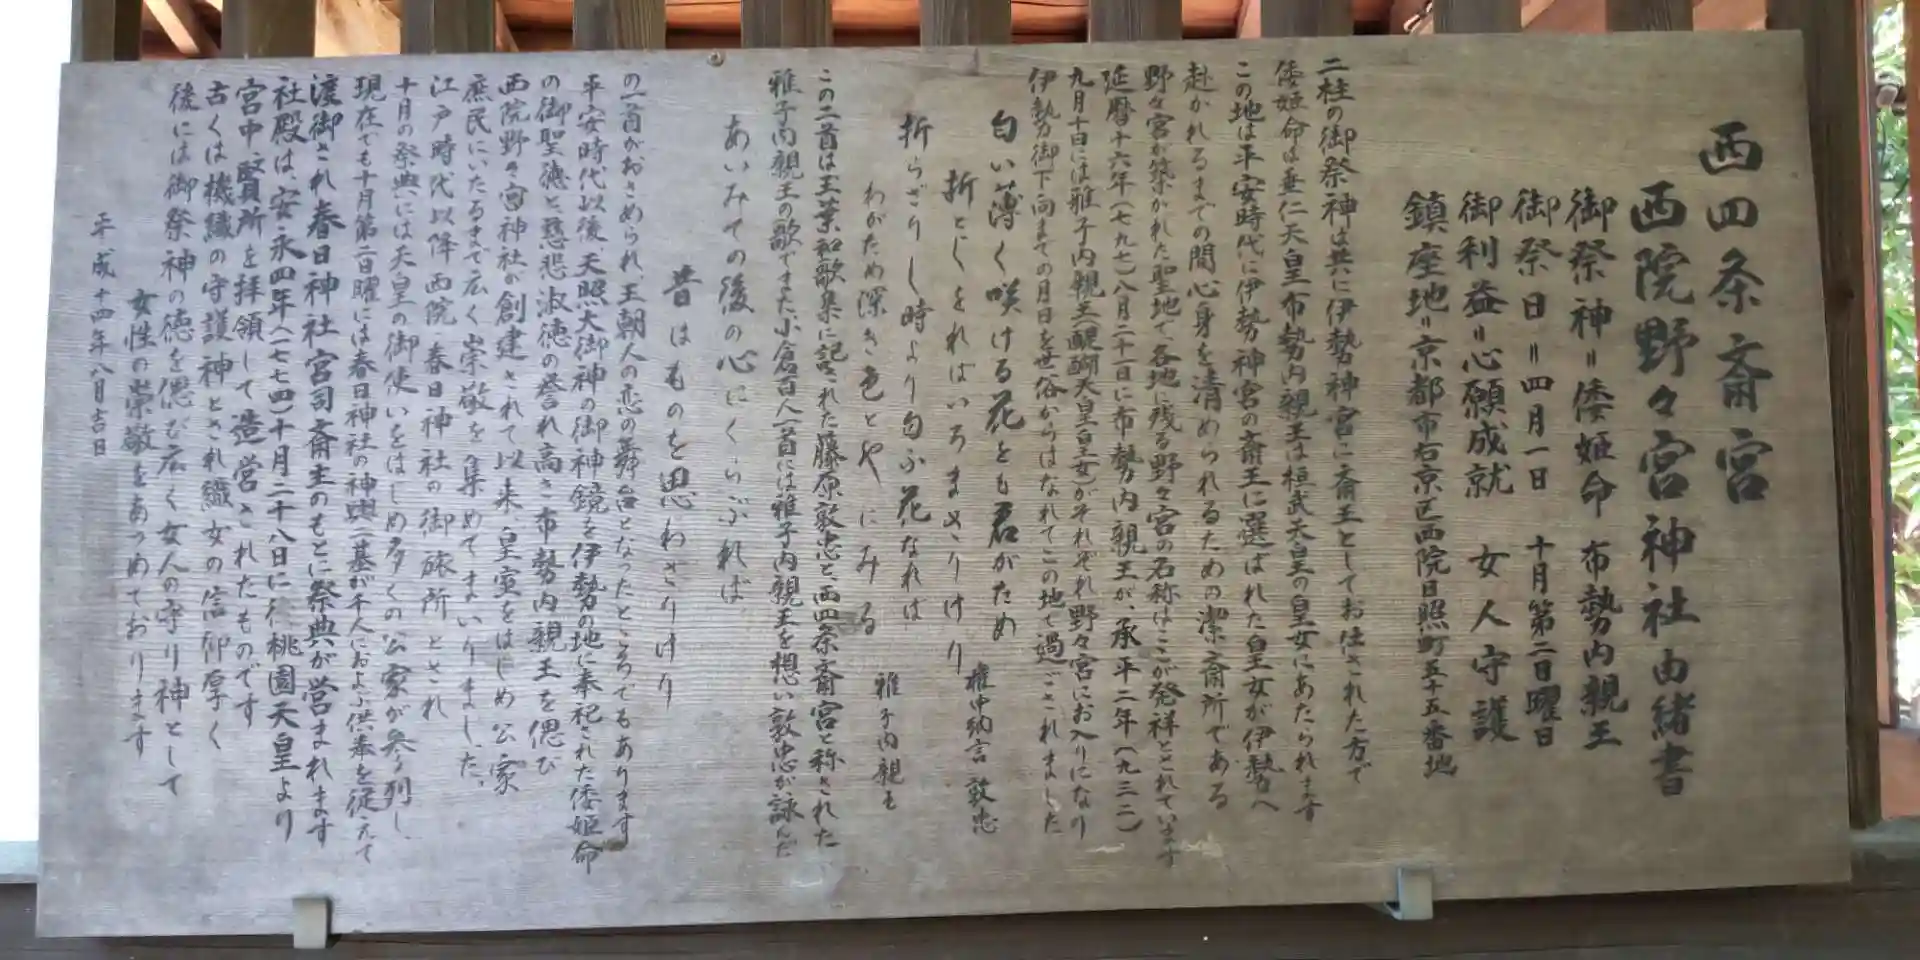 西四条斎宮
西院野々宮神社由緒書
御祭神＝倭姫命 布勢内親王
御祭日＝四月一日 十月第二日曜日
御利益＝心願成就 女人守護
鎮座地＝京都市右京区西院日照町五十五番地
二柱の御祭神は共に伊勢神宮に斎王としてお仕された方で
倭姫命は垂仁天皇布勢内親王は桓武天皇の皇女にあたられます
この地は平安時代に伊勢神宮の斎王に選ばれた皇女が伊勢へ
赴かれるまでの間心身を清められるための潔斎所である
野々宮が築かれた聖地で、各地に残る野々宮の名称はここが発祥とされています
延暦十六年（七九七）八月二十一日に布勢内親王が、承平二年（九三二）
九月十日には雅子内親王（醍醐天皇皇女）がそれぞれ野々宮にお入りになり
伊勢御下向までの月日を世俗からはなれてこの地で過ごされました
匂い薄く咲ける花をも君がため
折としをればいろまさりけり 権中納言 敦忠
折らざりし時より匂ふ花なれば
わがため深き色とやにみる 雅子内親王
この二首は玉葉和歌集に記された藤原敦忠と、西四条斎宮と称された
雅子内親王の歌でまた小倉百人一首には雅子内親王を想い敦忠が詠んだ
あいみての後の心にくらぶれば
昔はものを思わざりけり
の一首がおさめられ、王朝人の恋の舞台となったところでもあります
平安時代以後天照大御神の御神鏡を伊勢の地に奉祀された倭姫命
の御聖徳と慈悲淑徳の誉れ高き布勢内親王を偲び
西院野々宮神社が創建されて以来、皇室をはじめ公家
庶民にいたるまで広く崇敬を集めてまいりました。
江戸時代以降西院春日神社の御旅所とされ
十月の祭典には天皇の御使いをはじめ多くの公家が参列し、
現在でも十月第二日曜には春日神社の神輿一基が千人におよぶ供奉を従えて
渡御され春日神社宮司斎主のもとに祭典が営まれます
社殿は、安永四年（一七七四）十月二十八日に後桃園天皇より
宮中、賢所を拝領して造営されたものです
古くは機織の守護神とされ織女の信仰厚く
後には御祭神の徳を偲び広く女人の守り神として
女性の崇敬をあつめております
平成十四年八月吉日